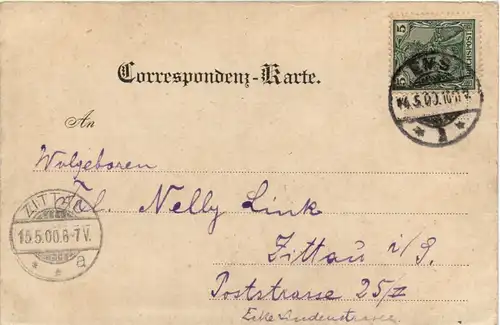 5
REICHSPOST
EMS
14.5.00.10-11V.
Correspondenz-Karte.
An
Wolgeboren
Frl. Nelly Link
ZITTAU
15.5.00.6-7V.
a
Zittau i/S.
Poststrasse 25/II
Ecke Lindenstrasse